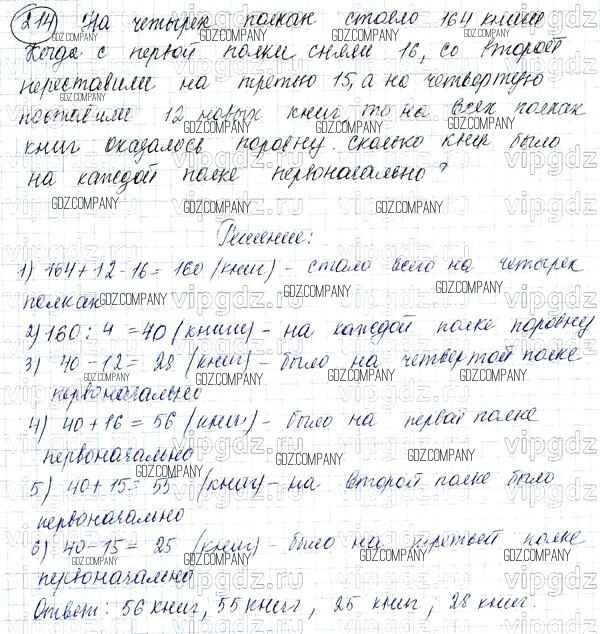 214) На четырех полках стояло 164 книги
Когда с первой полки сняли 16, со второй
переставили на третью 15, а на четвертую
поставили 12 новых книг, то на всех полках
книг оказалось поровну. Сколько книг было
на каждой полке первоначально?
Решение:
1) 164+12-16=160 (книг) - стало всего на четырех
полках
2) 160:4=40 (книги) - на каждой полке поровну
3) 40-12=28 (книг) - было на четвертой полке
первоначально
4) 40+16=56 (книг) - было на первой полке
первоначально
5) 40+15=55 (книг) - на второй полке было
первоначально
6) 40-15=25 (книг) - было на третьей полке
первоначально
Ответ: 56 книг, 55 книг, 25 книг, 28 книг.
GDZ.COMPANY
vipgdz.ru